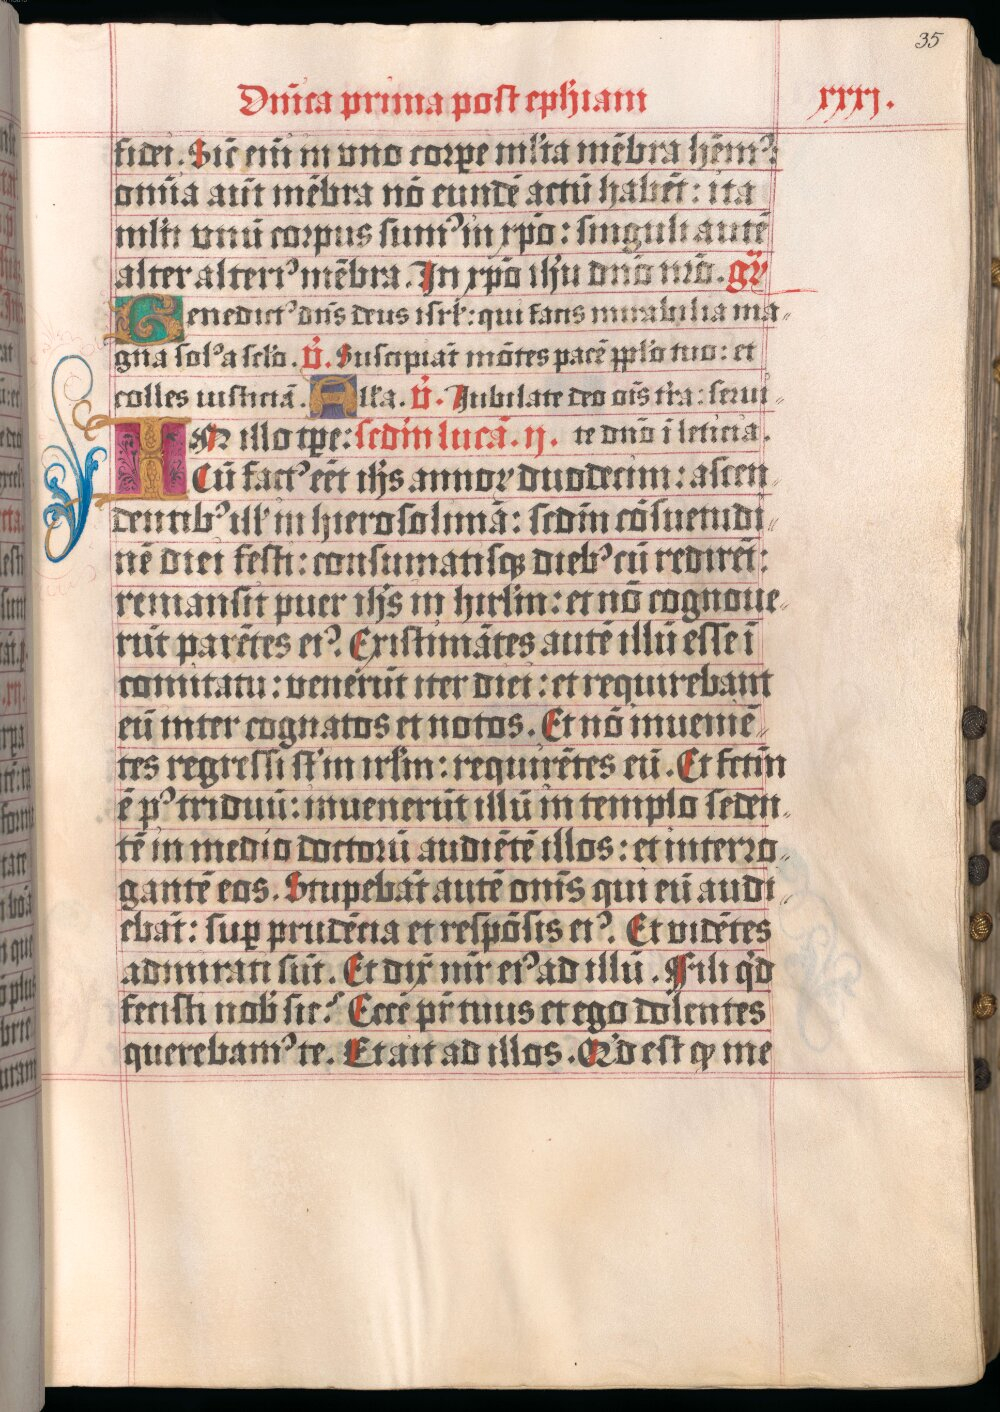 35
Dn̄ica prima post ephiam xxxj.
fidei. Sic̄ eni̅ in vno corꝑe ml'ta mēbra hēmꝰ:
omīa aūt mēbra nō eundē actū habēt: ita
ml'ti vnū corpus sumꝰ in xp̄o: singuli autē
alter alteriꝰ mēbra. In xp̄o ih'u dn̄o nr̄o. gr̄
Benedictꝰ dn̄s deus isrl': qui facis mirabilia ma„
gna solꝰ a sc'lo. v̄. Suscipiāt mōtes pacē ppl'o tuo: et
colles iusticiā. Alla. v̄. Iubilate deo oīs t'ra: serui„
IN illo tp̄e: scd̄m lucā. ij. te dn̄o ī leticia.
Cū factꝰ eēt ih̄s annoꝝ duodecim: ascen„
dentibꝰ ill' in hierosolimā: scd̄m cōsuetudi„
nē diei festi: consumatisqꝫ diebꝰ cū redirēt:
remansit puer ih̄s in hirl'm: et nō cognoue„
rūt parētes eiꝰ. Existimātes autē illū esse ī
comitatu: venerūt iter diei: et requirebant
eū inter cognatos et notos. Et nō inueniē„
tes regressi st̄ in irl'm: requirētes eū. Et fctm̄
ē pꝰ triduū: inuenerūt illū in templo seden„
tē in medio doctorū audiētē illos: et interro„
gantē eos. Stupebāt autē om̄s qui eū audi
ebāt: suꝑ prudēcia et respōsis eiꝰ. Et vidētes
admirati sūt. Et dix̄ mr̄ eiꝰ ad illū. Fili qͥd
fecisti nob̄ sic? Ecce pr̄ tuus et ego dolentes
querebamꝰ te. Et ait ad illos. Qͥd est qꝫ me